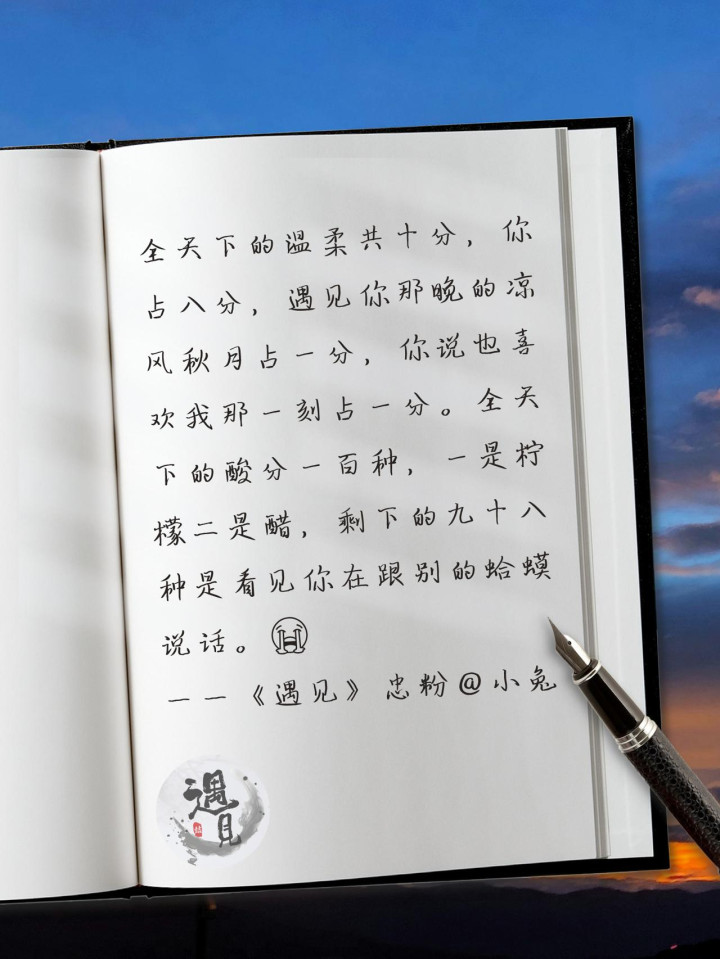 全天下的温柔共十分，你
占八分，遇见你那晚的凉
风秋月占一分，你说也喜
欢我那一刻占一分。全天
下的酸分一百种，一是柠
檬二是醋，剩下的九十八
种是看见你在跟别的蛤蟆
说话。😭
——《遇见》忠粉@小兔
遇见